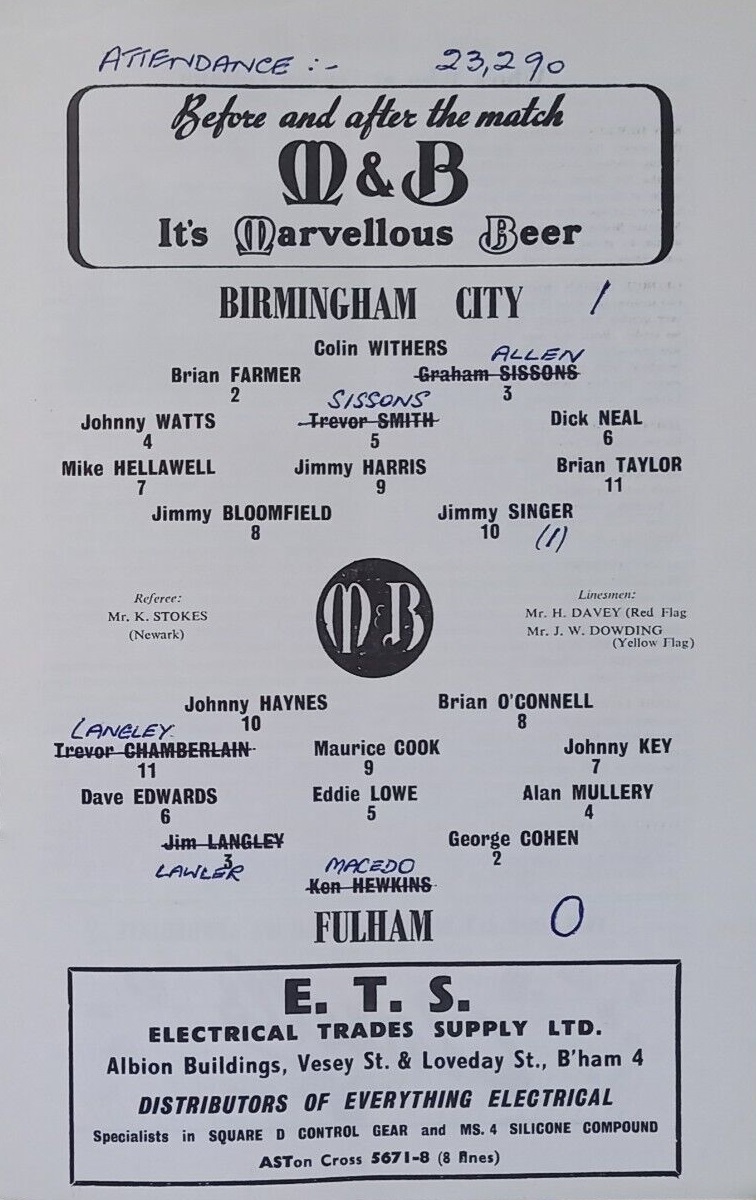 ATTENDANCE :- 23,290
Before and after the match
M & B
It's Marvellous Beer
BIRMINGHAM CITY 1
Colin WITHERS
ALLEN
Brian FARMER Graham SISSONS
2 3
SISSONS
Johnny WATTS Trevor SMITH Dick NEAL
4 5 6
Mike HELLAWELL Jimmy HARRIS Brian TAYLOR
7 9 11
Jimmy BLOOMFIELD Jimmy SINGER
8 10 (1)
Referee:
Mr. K. STOKES
(Newark)
M & B
Linesmen:
Mr. H. DAVEY (Red Flag
Mr. J. W. DOWDING
(Yellow Flag)
Johnny HAYNES Brian O'CONNELL
10 8
LANGLEY
Trevor CHAMBERLAIN Maurice COOK Johnny KEY
11 9 7
Dave EDWARDS Eddie LOWE Alan MULLERY
6 5 4
Jim LANGLEY George COHEN
3 2
LAWLER MACEDO
Ken HEWKINS
FULHAM 0
E. T. S.
ELECTRICAL TRADES SUPPLY LTD.
Albion Buildings, Vesey St. & Loveday St., B'ham 4
DISTRIBUTORS OF EVERYTHING ELECTRICAL
Specialists in SQUARE D CONTROL GEAR and MS. 4 SILICONE COMPOUND
ASTon Cross 5671-8 (8 lines)